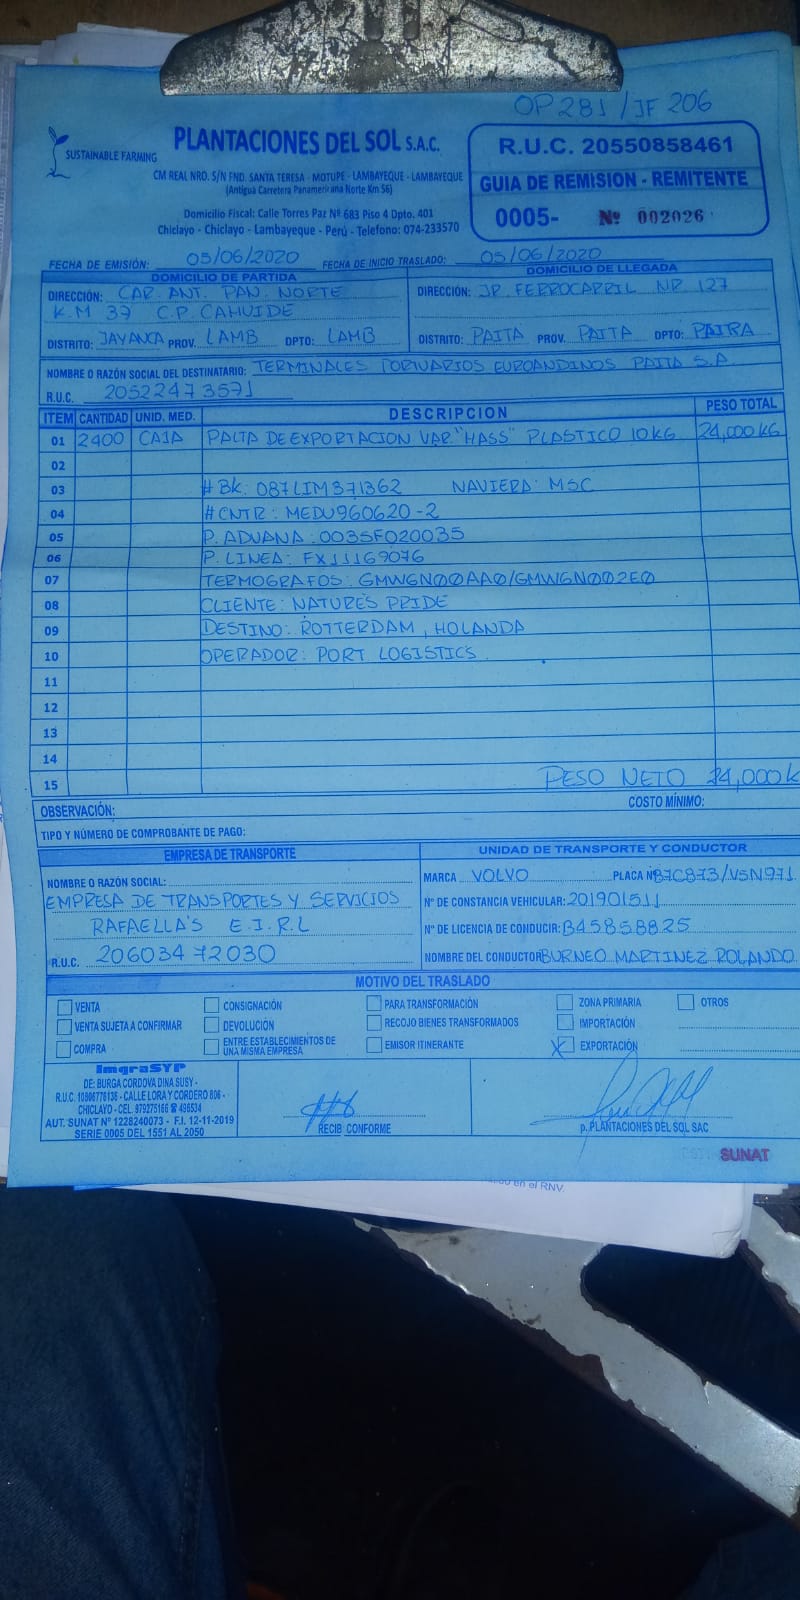 OP 281 / JF 206
SUSTAINABLE FARMING
PLANTACIONES DEL SOL S.A.C.
CM REAL NRO. S/N FND. SANTA TERESA - MOTUPE - LAMBAYEQUE - LAMBAYEQUE
(Antigua Carretera Panamericana Norte Km 56)
Domicilio Fiscal: Calle Torres Paz Nº 683 Piso 4 Dpto. 401
Chiclayo - Chiclayo - Lambayeque - Perú - Telefono: 074-233570
R.U.C. 20550858461
GUIA DE REMISION - REMITENTE
0005- Nº 002026
FECHA DE EMISIÓN: 05/06/2020 FECHA DE INICIO TRASLADO: 05/06/2020
DOMICILIO DE PARTIDA
DIRECCIÓN: CAR. ANT. PAN. NORTE
K.M 37 C.P. CAHUIDE
DISTRITO: JAYANCA PROV. LAMB DPTO: LAMB
DOMICILIO DE LLEGADA
DIRECCIÓN: JR. FERROCARRIL NR. 127
DISTRITO: PAITA PROV. PAITA DPTO: PAIRA
NOMBRE O RAZÓN SOCIAL DEL DESTINATARIO: TERMINALES PORTUARIOS EUROANDINOS PAITA S.A
R.U.C. 20522473571
ITEM CANTIDAD UNID. MED. DESCRIPCION PESO TOTAL
01 2400 CAJA PALTA DE EXPORTACION VAR. "HASS" PLASTICO 10 KG 24,000 KG
02
03 # BK: 087LIM371362 NAVIERA: MSC
04 # CNTR: MEDU960620-2
05 P. ADUANA: 0035F020035
06 P. LINEA: FX11169076
07 TERMOGRAFOS: GMWGN00AA0/GMWGN002E0
08 CLIENTE: NATURE'S PRIDE
09 DESTINO: ROTTERDAM, HOLANDA
10 OPERADOR: PORT LOGISTICS
11
12
13
14
15 PESO NETO 24,000 K
OBSERVACIÓN: COSTO MÍNIMO:
TIPO Y NÚMERO DE COMPROBANTE DE PAGO:
EMPRESA DE TRANSPORTE
NOMBRE O RAZÓN SOCIAL:
EMPRESA DE TRANSPORTES Y SERVICIOS
RAFAELLA'S E.I.R.L
R.U.C. 20603472030
UNIDAD DE TRANSPORTE Y CONDUCTOR
MARCA VOLVO PLACA Nº B7C873/V5N971
Nº DE CONSTANCIA VEHICULAR: 201901511
Nº DE LICENCIA DE CONDUCIR: B45858825
NOMBRE DEL CONDUCTOR BURNEO MARTINEZ ROLANDO
MOTIVO DEL TRASLADO
VENTA CONSIGNACIÓN PARA TRANSFORMACIÓN ZONA PRIMARIA OTROS
VENTA SUJETA A CONFIRMAR DEVOLUCIÓN RECOJO BIENES TRANSFORMADOS IMPORTACIÓN
COMPRA ENTRE ESTABLECIMIENTOS DE UNA MISMA EMPRESA EMISOR ITINERANTE X EXPORTACIÓN
ImgraSYP
DE: BURGA CORDOVA DINA SUSY -
R.U.C. 10806778136 - CALLE LORA Y CORDERO 806 -
CHICLAYO - CEL. 979275166 ☎ 496534
AUT. SUNAT Nº 1228240073 - F.I. 12-11-2019
SERIE 0005 DEL 1551 AL 2050
RECIBÍ CONFORME
p. PLANTACIONES DEL SOL SAC
SUNAT
en el RNV.